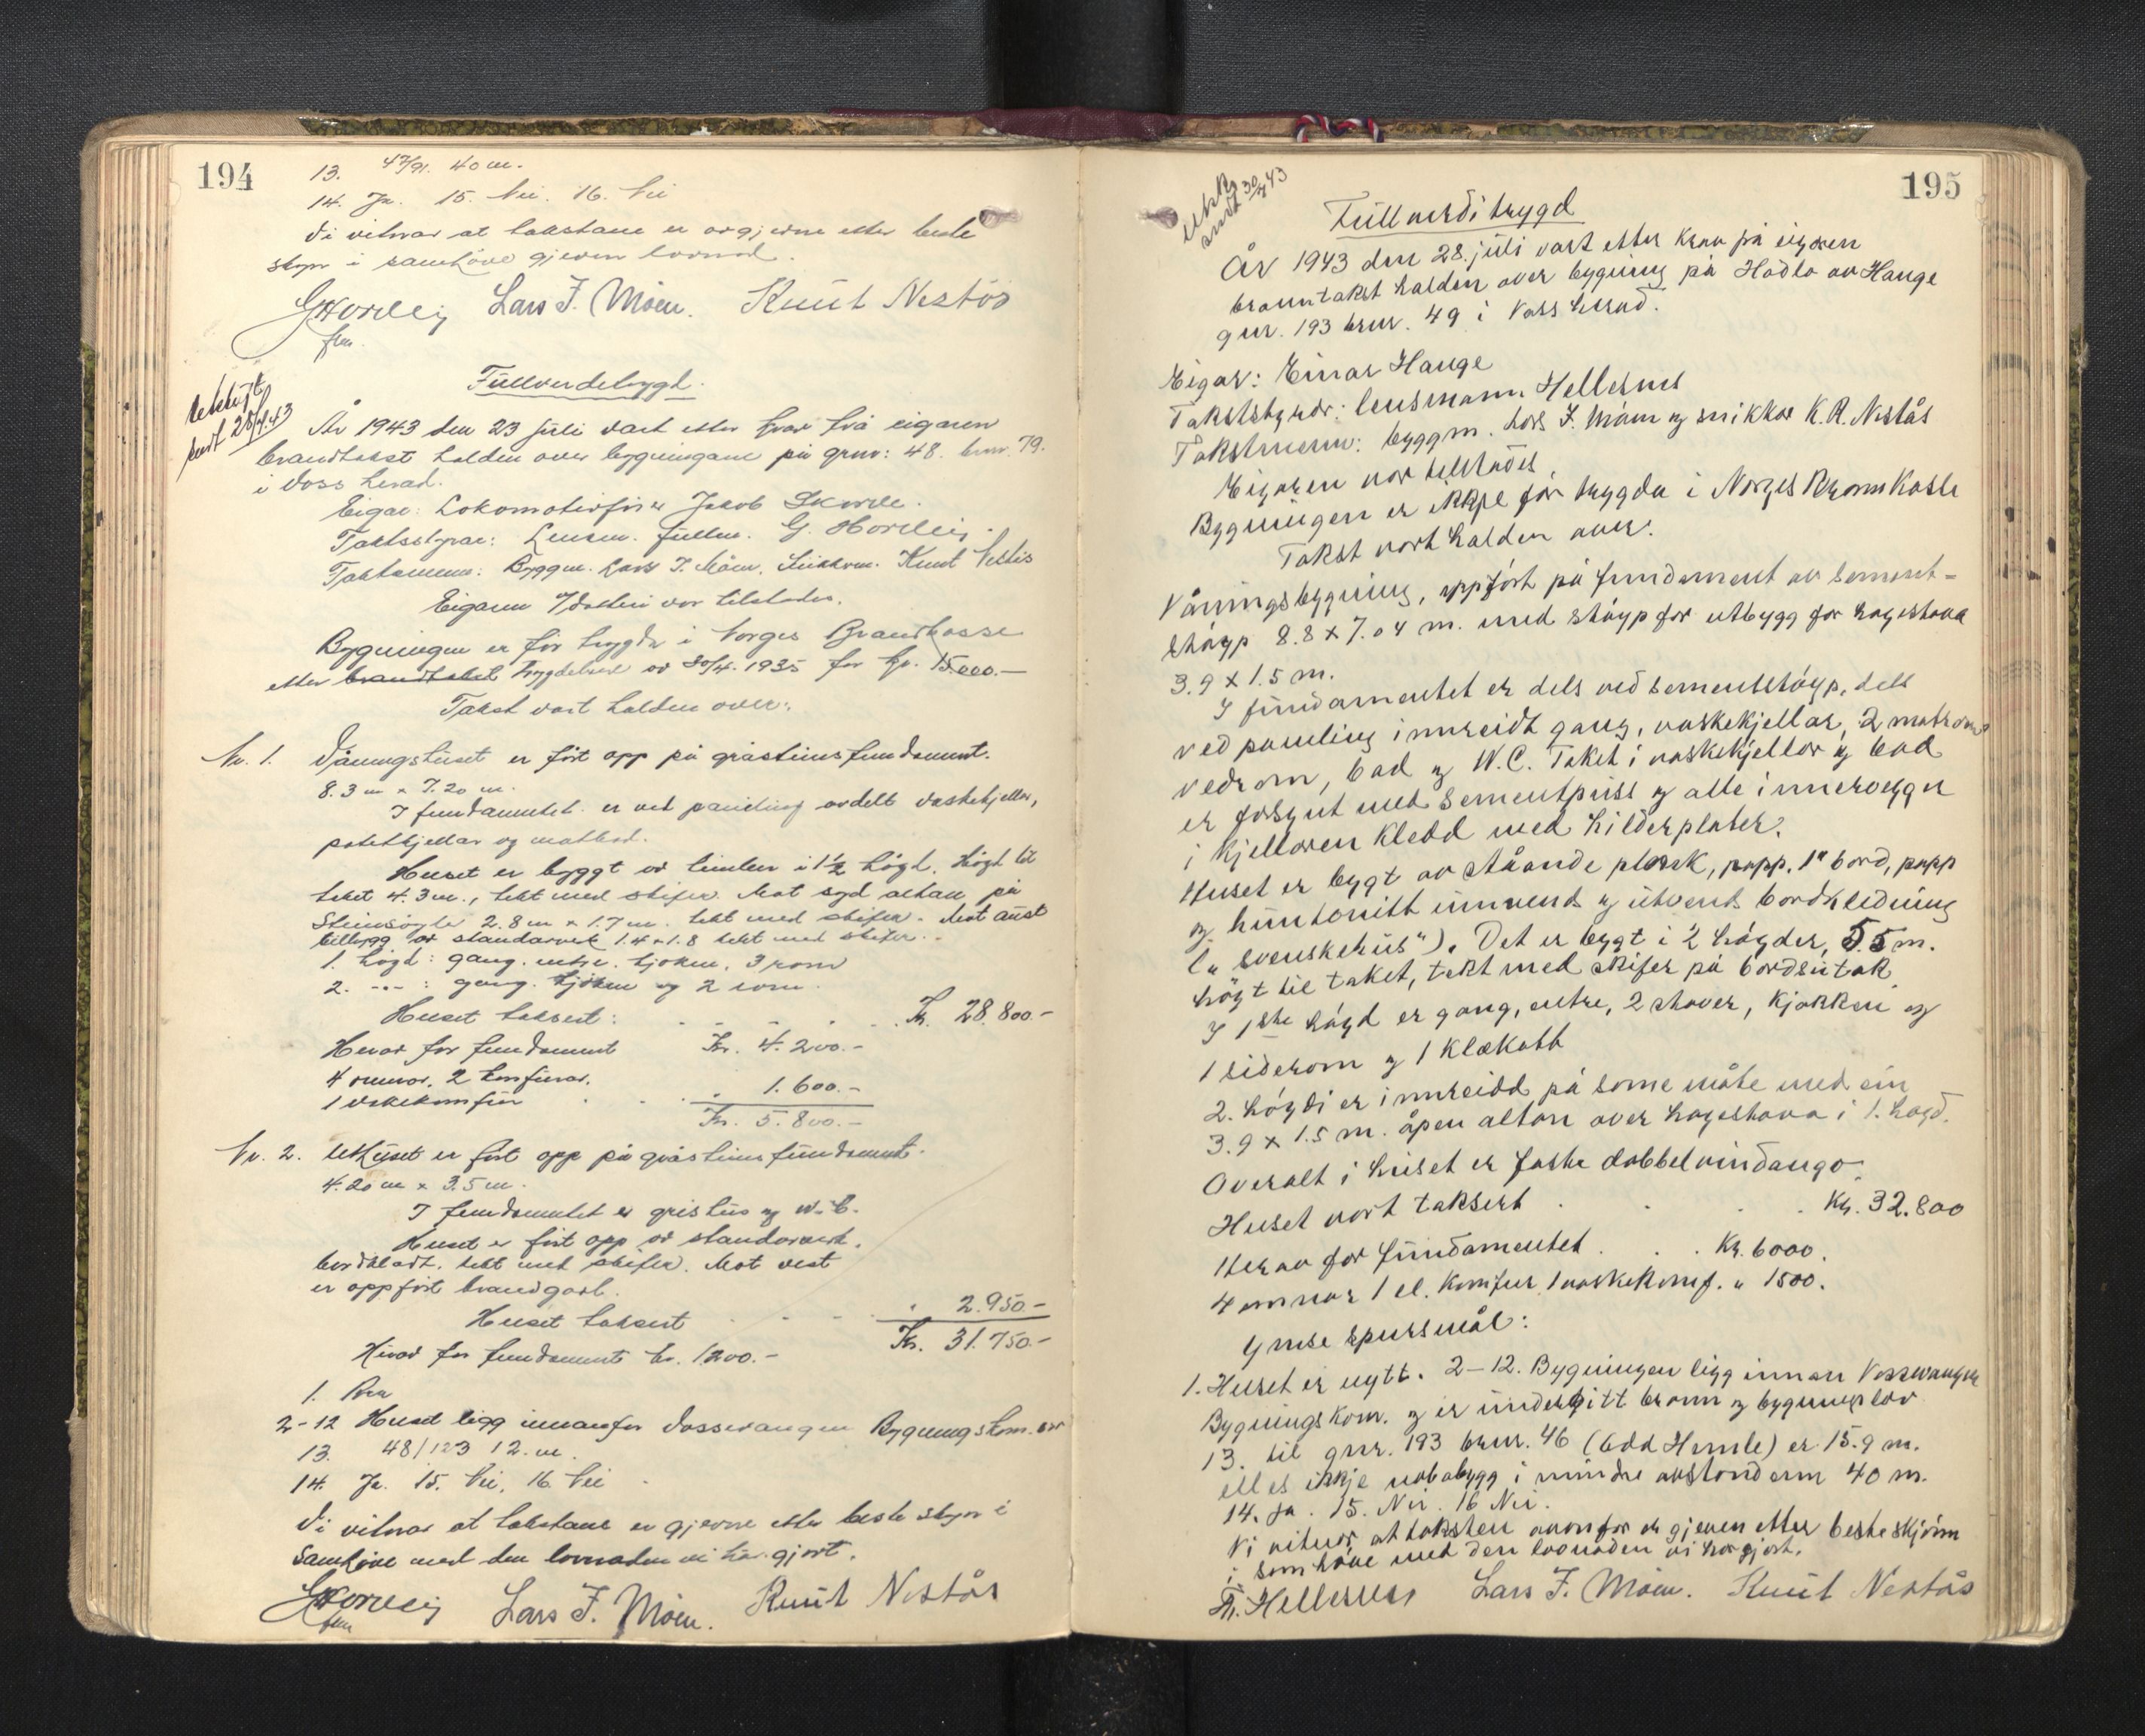 194
13. 47/91. 40 m.
14. Ja. 15. Nei. 16. Nei
Vi vitnar at takstane er avgjevne etter beste
skyn i samhöve gjeven lovnad.
GHorvei Lars J. Möen. Knut Nestås
fm.
Fullverdetrygd.
Utskrift
sendt 28/7.43
År 1943 den 23 juli vart etter krav frå eigaren
brandtakst halden over bygningane på gnr: 48. bnr. 79.
i Voss herad.
Eigar: Lokomotivförer Jakob Skorve.
Takststyrar: Lensm. fullm. G. Horvei.
Takstmenn: Byggm. Lars J. Möen. Snikkarm. Knut Nestås
Eigaren var tilstades.
Bygningen er för trygda i Norges Brandkasse
etter brandtakst trygdebrev av 30/4. 1935 for kr. 15.000.-
Takst vart halden over:
Nr. 1. Våningshuset er fört opp på gråsteinsfundament.
8.3 m x 7.20 m.
I fundamentet er ved paneling avdelt vaskekjellar,
potetkjellar og matbod.
Huset er bygt av timber i 1½ högd. Högd til
taket 4.3 m., tekt med skifer. Mot syd altan på
Steinsöyle 2.8 m x 1.7 m. tekt med skifer. Mot aust
tilbygg av standarverk 1.4 x 1.8 tekt med skifer.
1. högd: gang. entre. kjöken, 3 rom
2. -"- : gang. kjöken og 2 rom.
Huset taksert: Kr. 28.800.-
Herav for fundament Kr. 4.200.-
4 omnar. 2 komfurar.
1 vaskekomfur " 1.600.-
Kr. 5.800.-
Nr. 2. Uthuset er fört opp på gråsteinsfundament.
4.20 m x 3.5 m.
I fundamentet er grishus og W.C.
Huset er fört opp av standarverk.
bordkledt. tekt med skifer. Mot vest
er oppfört brandgavl.
Huset taksert " 2.950.-
Kr. 31.750.-
Herav for fundament kr. 1200.-
1. Bra
2-12 Huset ligg innanfor Vossevangen Bygningskom.
13. 48/123 12. m.
14. Ja. 15. Nei. 16. Nei
Vi vitnar at takstane er gjevne etter beste skyn i
samhöve med den lovnaden vi har gjort.
GHorvei Lars J. Möen. Knut Nestås
fm
195
Utskr.
sendt 30/7 43
Fullverditrygd
År 1943 den 28. juli vart etter krav på eigaren
branntakst halden over bygning på Hadla av Hauge
gnr. 193 bnr. 49 i Voss herad.
Eigar: Einar Hauge
Takststyrar: lensmann Hellesnes
Takstmenn: byggm. Lars J. Möen og snikkar K.R. Nestås
Eigaren var tilstades.
Bygningen er ikkje för trygda i Norges Brannkasse
Takst vart halden over:
Våningsbygning, oppfört på fundament av sement-
stöyp 8.8 x 7.04 m. med stöyp for utbygg for hagestova
3.9 x 1.5 m.
I fundamentet er dels ved sementstöyp, dels
ved paneling innreidt gang, vaskekjellar, 2 matrom
vedrom, bad og W.C. Taket i vaskekjellar og bad
er forsynt med sementpuss og alle innervegger
i kjellaren kledd med hilderplater.
Huset er bygt av ståande plank, papp, 1" bord, papp
og huntonitt innvendt og utvendt bordkledning
(„svenskehus"). Det er bygt i 2 högder, 5.5 m.
högt til taket, tekt med skifer på bordsutak
I 1ste högd er gang, entre, 2 stover, kjökken og
1 siderom og 1 klækott
2. högdi er innreidd på same måte med ein
3.9 x 1.5 m. åpen altan over hagestova i 1. högd.
Overalt i huset er faste dobbelvindaugo.
Huset vart taksert Kr. 32.800
Herav for fundamentet Kr. 6000.
4 omnar 1 el. komfur 1 vaskekomf. " 1500.
Ymse spursmål:
1. Huset er nytt. 2-12. Bygningen ligg innan Vossevangen
Bygningskom. og er undergitt brann og bygningslov
13. til gnr. 193 bnr. 46 (Odd Hemle) er 15.9 m.
elles ikkje nabobygg i mindre avstand enn 40 m.
14. Ja. 15. Nei. 16 Nei.
Vi vitnar at taksten ovanfor er gjeven etter beste skjönn
i samhöve med den lovnaden vi har gjort.
Hellesnes Lars J. Möen. Knut Nestås